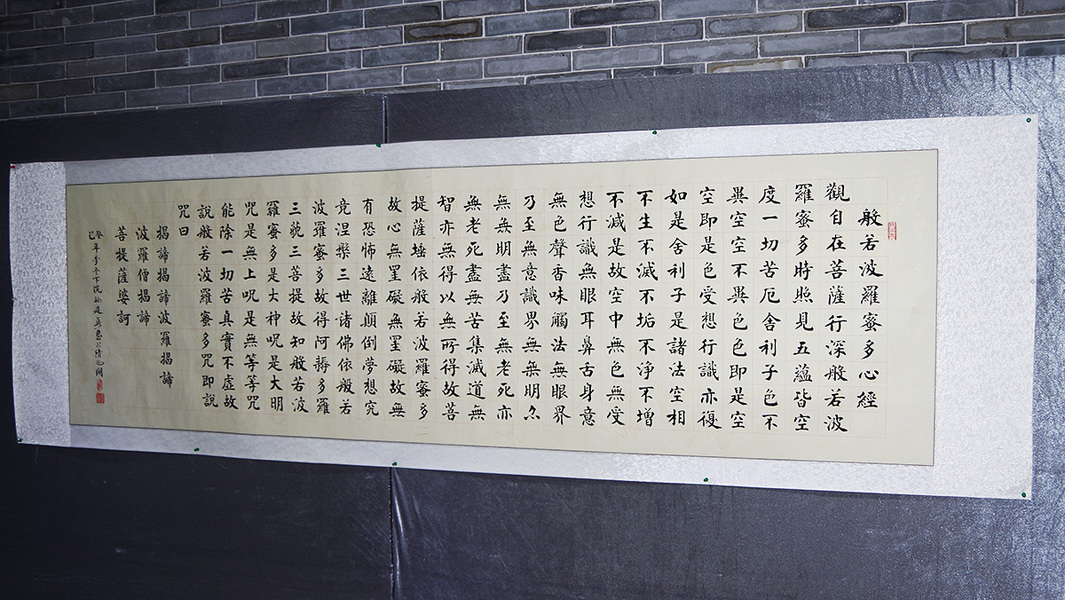 般若波羅蜜多心經
觀自在菩薩行深般若波
羅蜜多時照見五蘊皆空
度一切苦厄舍利子色不
異空空不異色色即是空
空即是色受想行識亦復
如是舍利子是諸法空相
不生不滅不垢不淨不增
不減是故空中無色無受
想行識無眼耳鼻舌身意
無色聲香味觸法無眼界
乃至無意識界無無明亦
無無明盡乃至無老死亦
無老死盡無苦集滅道無
智亦無得以無所得故菩
提薩埵依般若波羅蜜多
故心無罣礙無罣礙故無
有恐怖遠離顛倒夢想究
竟涅槃三世諸佛依般若
波羅蜜多故得阿耨多羅
三藐三菩提故知般若波
羅蜜多是大神呪是大明
呪是無上呪是無等等咒
能除一切苦真實不虛故
說般若波羅蜜多咒即說
咒曰
揭諦揭諦波羅揭諦
波羅僧揭諦
菩提薩婆訶